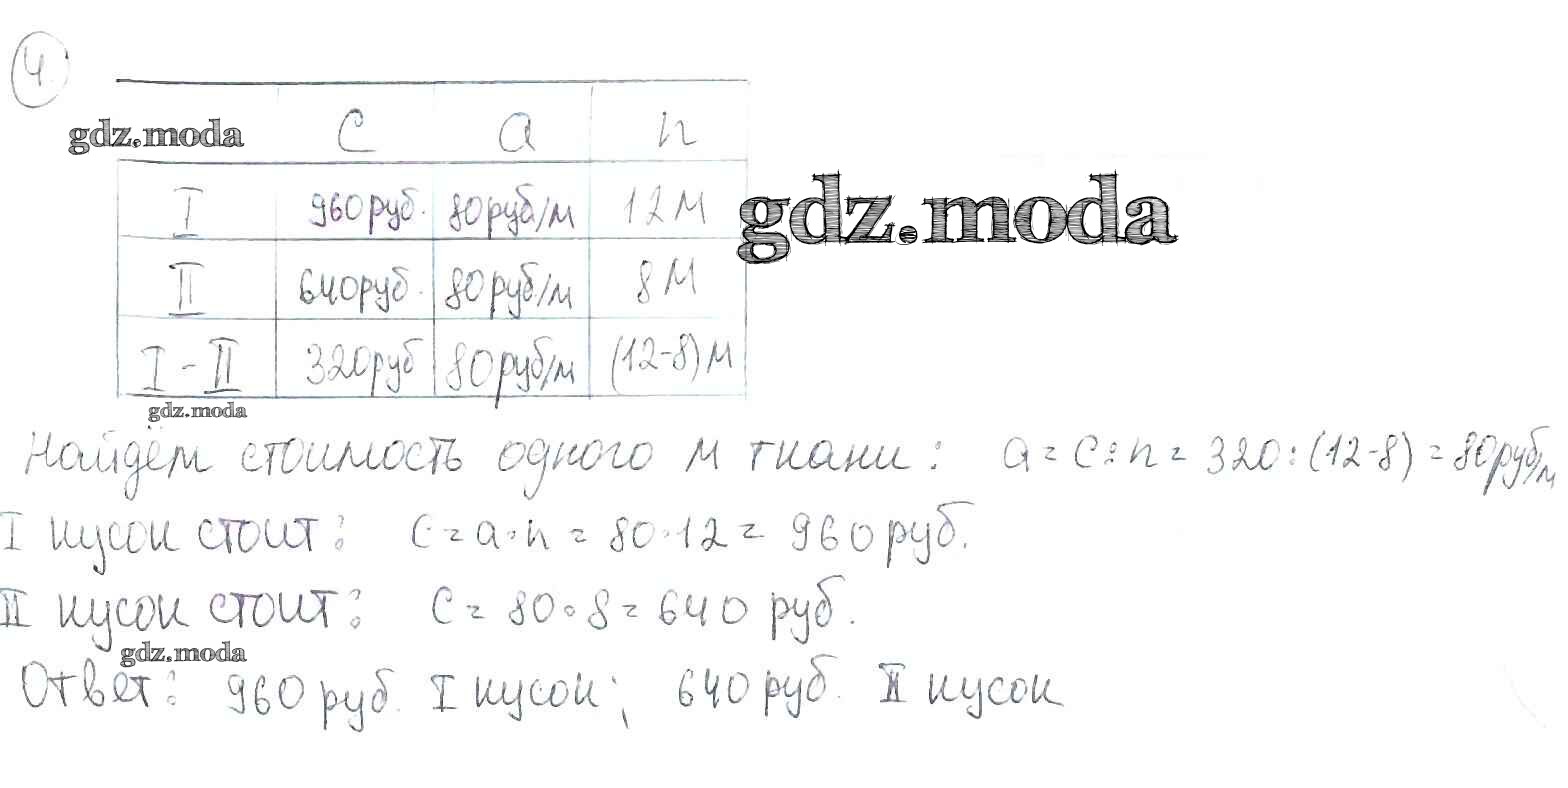 4
gdz.moda C a n
I 960 руб. 80 руб/м 12 м
gdz.moda
II 640 руб. 80 руб/м 8 м
I - II 320 руб 80 руб/м (12-8) м
gdz.moda
Найдём стоимость одного м ткани: a = C : n = 320 : (12-8) = 80 руб/м
I кусок стоит: C = a · n = 80 · 12 = 960 руб.
II кусок стоит: C = 80 · 8 = 640 руб.
gdz.moda
Ответ: 960 руб. I кусок; 640 руб. II кусок